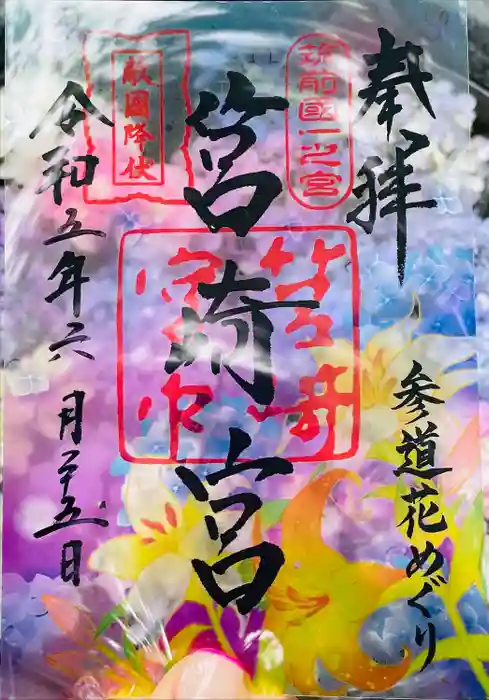 奉拝
参道花めぐり
筑前國一之宮
筥崎宮
筥崎宮印
敵國降伏
令和五年六月二十五日